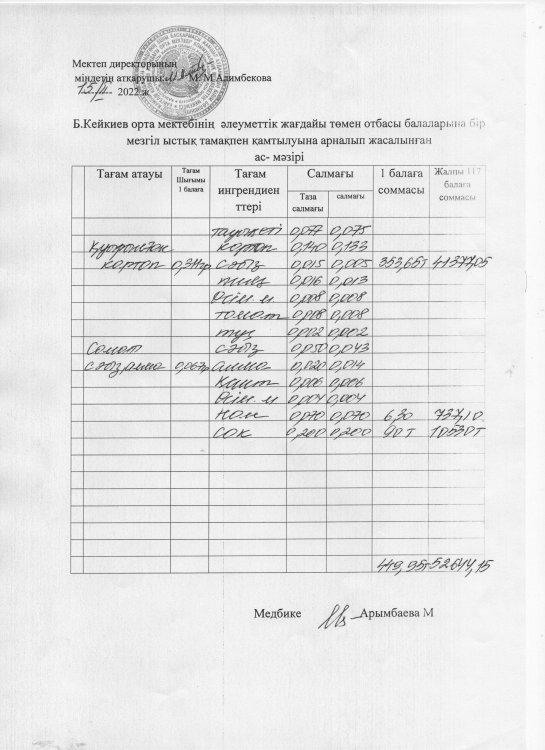 Мектеп директорының
міндетін атқарушы: М. М Алимбекова
15/ІІ 2022 ж
Б.Кейкиев орта мектебінің әлеуметтік жағдайы төмен отбасы балаларына бір
мезгіл ыстық тамақпен қамтылуына арналып жасалынған
ас- мәзірі
Тағам атауы Тағам Шығымы 1 балаға Тағам ингрендиен ттері Салмағы 1 балаға соммасы Жалпы 117 балаға соммасы
Таза салмағы салмағы
тауық еті 0,077 0,075
Қуырылған картоп 0,140 0,133
картоп 0,311гр сәбіз 0,015 0,005 353,65т 41377,05
пияз 0,016 0,013
Өсім.м 0,008 0,008
томат 0,008 0,008
тұз 0,002 0,002
Салат сәбіз 0,050 0,043
сәбіз,алма 0,067гр алма 0,020 0,014
Қант 0,006 0,006
Өсім.м 0,004 0,004
нан 0,070 0,070 6,30 737,10
сок 0,200 0,200 90т 10530т
449,95т 52644,15
Медбике Арымбаева М